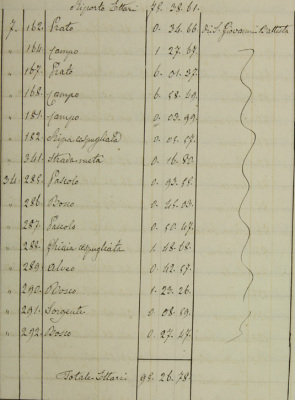 Riporto Ettari 78. 38. 61.
7. 162. Prato 0. 34. 66. di S. Giovanni Battista
" 164. Campo 1. 27. 67.
" 167. Prato 6. 01. 37.
" 168. Campo 6. 58. 49.
" 181. Campo 0. 03. 99.
" 182. Ripa cespugliata 0. 05. 57.
" 341. Strada metà 0. 16. 80.
34. 285. Pascolo 0. 93. 55.
" 286. Bosco 0. 45. 03.
" 287. Pascolo 0. 50. 47.
" 288. Ghiaia cespugliata 1. 48. 68.
" 289. Alveo 0. 42. 57.
" 290. Bosco 1. 23. 26.
" 291. Sorgente 0. 08. 59.
" 292. Bosco 0. 27. 47.
Totale Ettari 98. 26. 78.